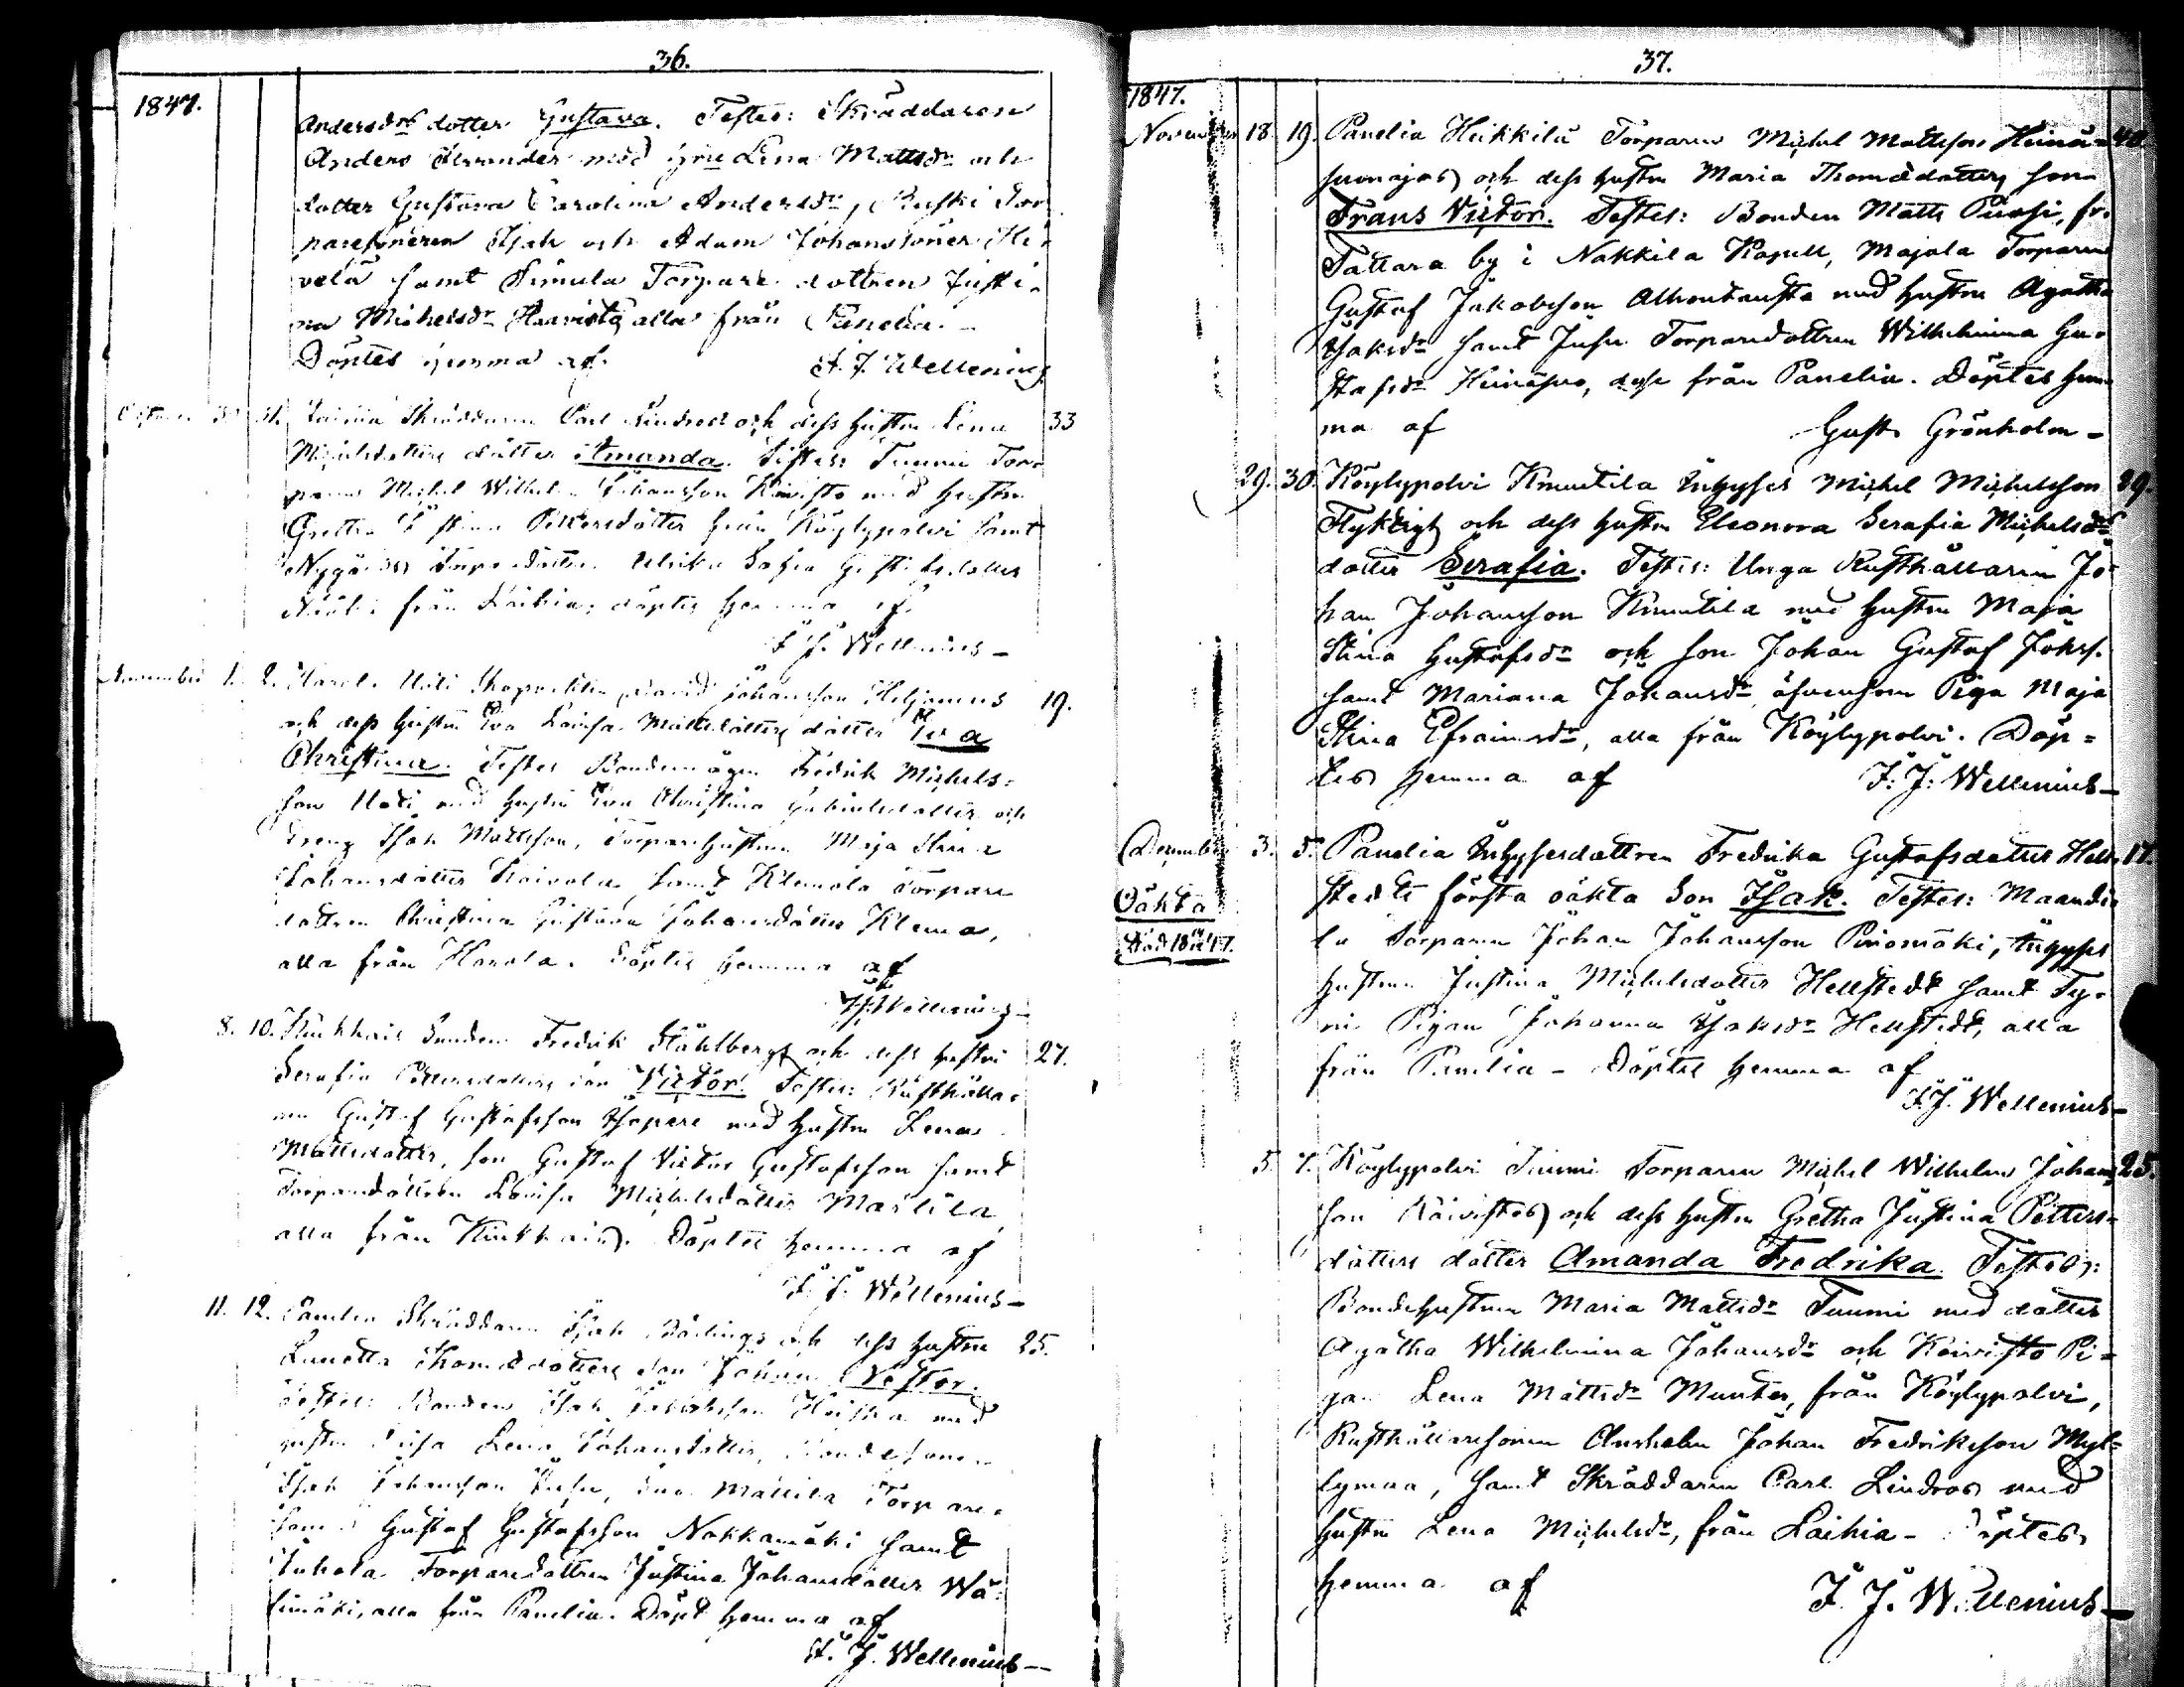 36.
1847.
Andersdrs dotter Gustava. Testes: Skräddaren
Anders med Lena Mattsdr och
dotter Gustava Carolina Andersdr, Ruski Tor
paresönerna Isak och Adam Johanssöner Hi-
velä samt Simula Torpare dottren Justi-
na Michelsdr Haavisto alla från Panelia.
Döptes hemma af. F. J. Wellenius
31. Laihia Skräddaren Carl Lindroos och dess hustru Lena 33
Michelsdotters dotter Amanda. Testes: Tuumi Tor-
paren Michel Wilhelm Johansson Koivisto med hustru
Gretha Justina Pettersdotter från Köylypolvi samt
Ulrika Sofia Gustafsdotter
från Laihia, döptes hemma af
F. J. Wellenius
November 1. 2. Harol. Uoti David Johansson Heljanus 19.
och dess hustru Eva Lovisa Mattsdotters dotter Eva
Christina. Testes Bondemågen Fredrik Michels-
son Uoti med hustru Eva Christina Gabrielsdotter och
Dreng Isak Mattsson, Torparehustrun Maja Stina
Johansdotter Koivola, samt Klemola Torpare
dottren Christina Gustava Johansdotter Klema,
alla från Harola. Döptes hemma af
F. J. Wellenius
8. 10. Kiukkais Sunden Fredrik Ståhlberg och dess hustru 27.
Serafia Pettersdotters son Victor. Testes: Rusthålla-
ren Gustaf Gustafsson Isopere med hustru Lena
Mattsdotter, son Gustaf Victor Gustafsson samt
Torparedottren Lovisa Michelsdotter Mastila,
alla från Kiukkais. Döptes hemma af
F. J. Wellenius
11. 12. Panelia Skräddaren Isak och dess hustru 25.
Lunetta Thomædotters son Johan Nestor.
Testes: Bonden Isak Jakobsson med
hustru Lena Johansdotter, Bondesonen
Isak Johansson Mattila Torpare-
sonen Gustaf Gustafsson Nokkamäki samt
Juhola Torparedottren Justina Johansdotter Wä-
himäki, alla från Panelia. Döpt hemma af
F. J. Wellenius
37.
1847.
November 18. 19. Panelia Heikkilä Torparen Michel Mattsson Heinä- 40
suonajas och dess hustru Maria Thomædotters son
Frans Victor. Testes: Bonden Matts Puosi, fr.
Tattara by i Nakkila Kapell, Majala Torparen
Gustaf Jakobsson Alhontausta med hustru Agatha
Isaksdr, samt Juhu Torparedottren Wilhelmina Gu-
stafsdr Heinäsuo, desse från Panelia. Döptes hem-
ma af Gust. Grönholm
29. 30. Köylypolvi Knuutila Inhyses Michel Michelsson 29.
Flyktigt och dess hustru Eleonora Serafia Michelsdrs
dotter Serafia. Testes: Unga Rusthållaren Jo-
han Johansson Knuutila med hustru Maja
Stina Gustafsdr och son Johan Gustaf Johss.
samt Mariana Johansdr, äfvensom Piga Maja
Stina Efraimsdr, alla från Köylypolvi. Döp-
tes hemma af F. J. Wellenius
December 3. 5. Panelia Inhysesdottren Fredrika Gustafsdotter Hell- 17.
Oäkta
stedts första oäkta son Isak. Testes: Maandi-
la Torparen Johan Johansson Pinomäki, Inhyses
hustrun Justina Michelsdotter Hellstedt samt Ty-
ni Pigan Johanna Isaksdr Hellstedt, alla
från Panelia – Döptes hemma af
F. J. Wellenius
5. 7. Köylypolvi Tuumi Torparen Michel Wilhelm Johans- 25.
son Koivistos och dess hustru Gretha Justina Petters-
dotters dotter Amanda Fredrika. Testes:
Bondehustrun Maria Mattsdr Tuumi med dotter
Agatha Wilhelmina Johansdr och Koivisto Pi-
gan Lena Mattsdr Munter, från Köylypolvi,
Rusthållaresonen Anshelm Johan Fredriksson Myl-
lymaa, samt Skräddaren Carl Lindroos med
hustru Lena Michelsdr, från Laihia – Döptes
hemma af F. J. Wellenius